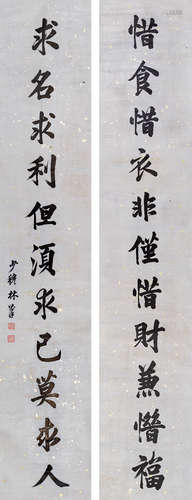 惜食惜衣非僅惜財兼惜福
求名求利但須求己莫求人
少穆林